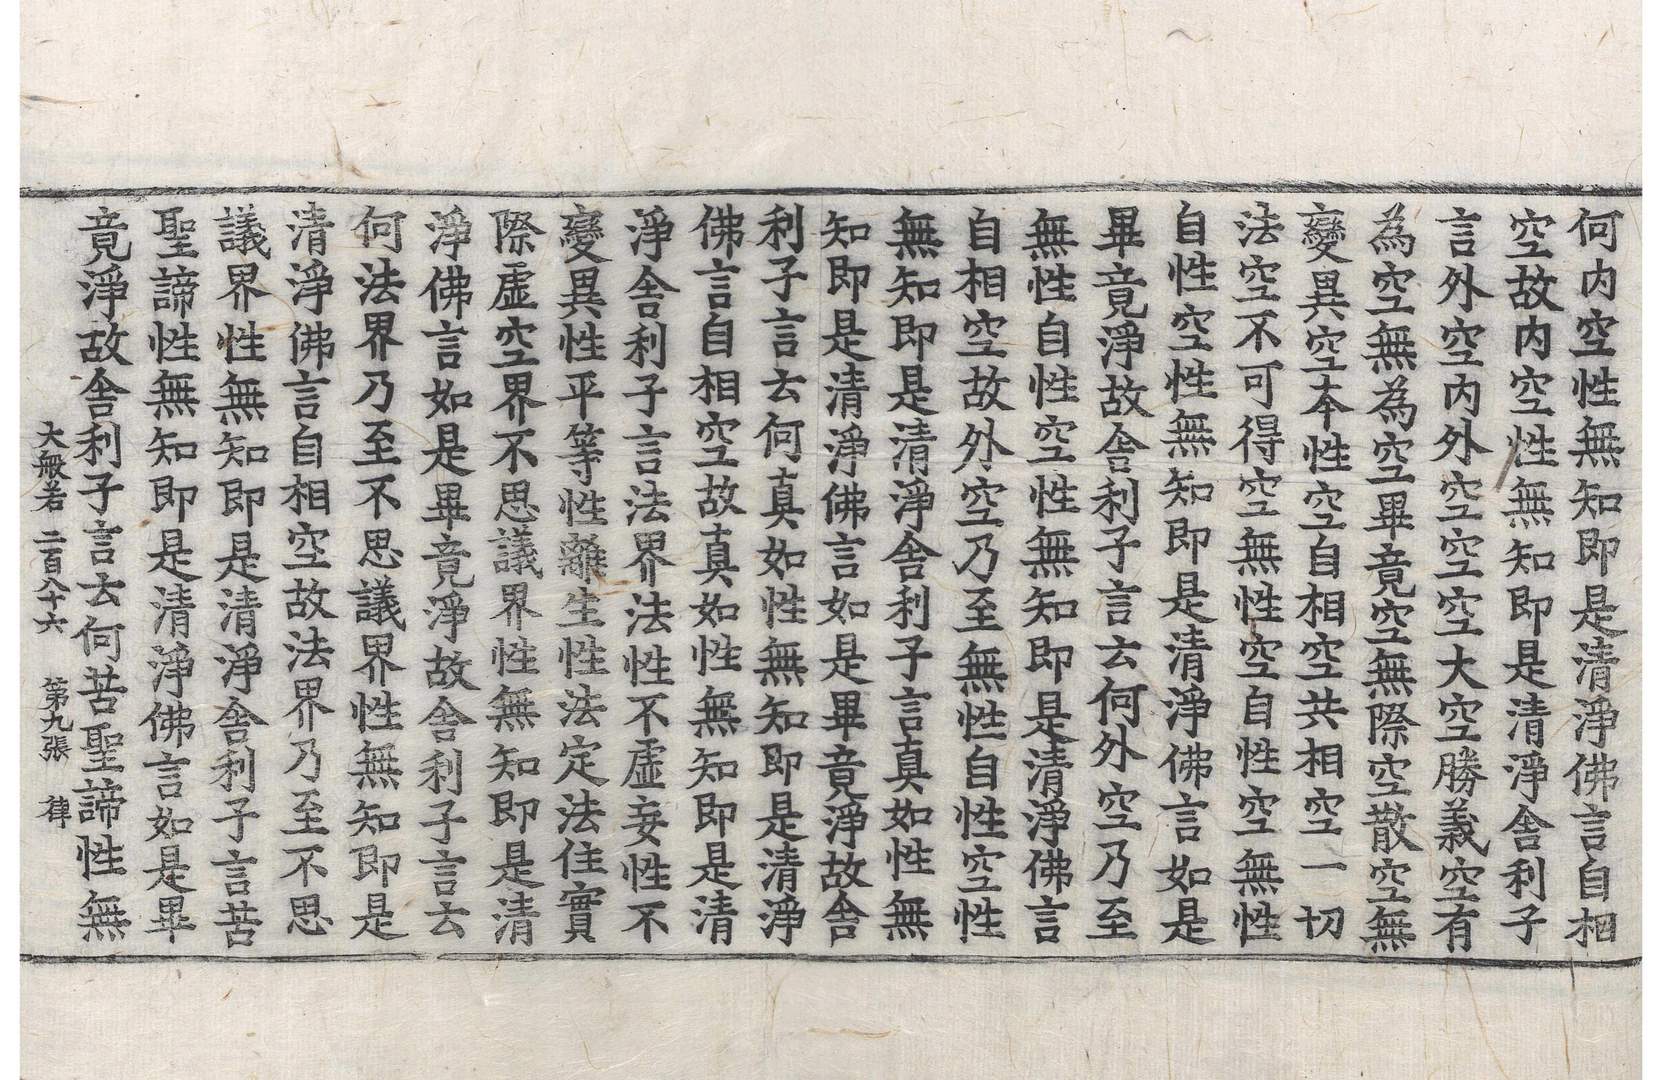 何内空性無知即是清淨佛言自相
空故内空性無知即是清淨舎利子
言外空内外空空空大空勝義空有
為空無為空畢竟空無際空散空無
變異空本性空自相空共相空一切
法空不可得空無性空自性空無性
自性空性無知即是清淨佛言如是
畢竟淨故舎利子言云何外空乃至
無性自性空性無知即是清淨佛言
自相空故外空乃至無性自性空性
無知即是清淨舎利子言真如性無
知即是清淨佛言如是畢竟淨故舎
利子言云何真如性無知即是清淨
佛言自相空故真如性無知即是清
淨舎利子言法界法性不虛妄性不
變異性平等性離生性法定法住實
際虛空界不思議界性無知即是清
淨佛言如是畢竟淨故舎利子言云
何法界乃至不思議界性無知即是
清淨佛言自相空故法界乃至不思
議界性無知即是清淨舎利子言苦
聖諦性無知即是清淨佛言如是畢
竟淨故舎利子言云何苦聖諦性無
大般若 二百八十六 第九張 律